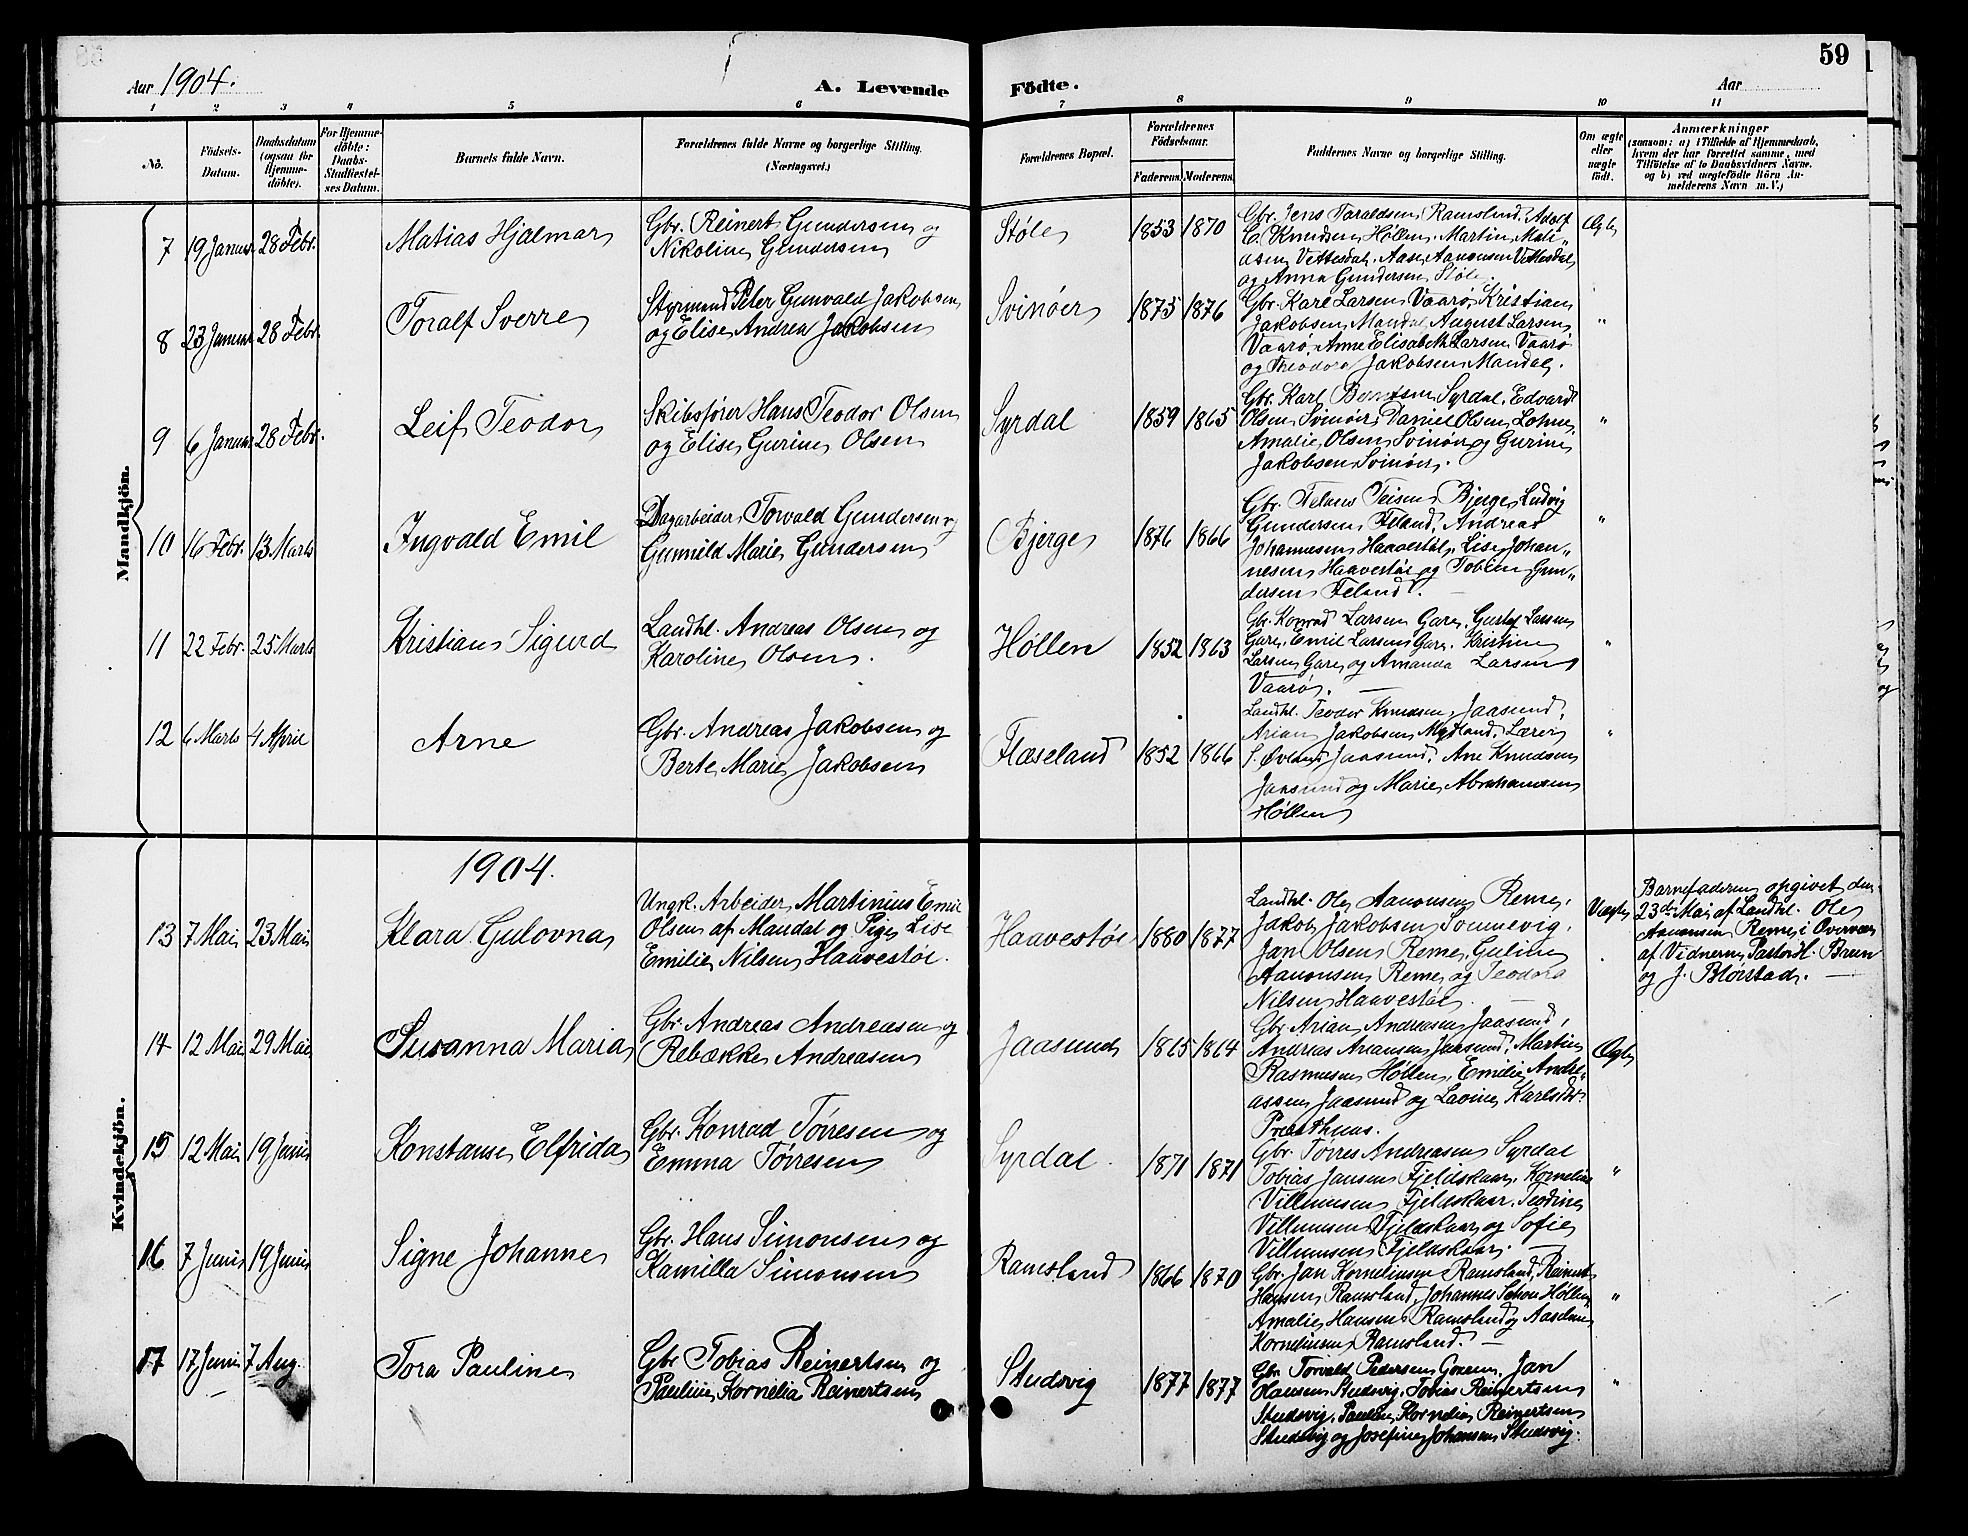 59
Aar 1904.
A. Levende Födte.
Aar
1 2 3 4 5 6 7 8 9 10 11
No.
Födsels-Datum.
Daabsdatum (ogsaa for Hjemmedöbte).
For Hjemmedöbte: Daabs-Stadfæstelses Datum.
Barnets fulde Navn.
Forældrenes fulde Navne og borgerlige Stilling. (Næringsvei.)
Forældrenes Bopæl.
Forældrenes Födselsaar.
Faderens. Moderens.
Faddernes Navne og borgerlige Stilling.
Om ægte eller uægte födt.
Anmærkninger
(saasom: a) i Tilfælde af Hjemmedaab, hvem der har forrettet samme, med Tilföielse af to Daabsvidners Navne. og b) ved uægtefödte Börn Anmelderens Navn m. V.)
Mandkjön.
7 19 Januar 28 Febr.
Matias Hjalmar
Gbr. Reinert Gundersen og
Nikoline Gundersen
Støle 1853 1870
Gbr. Jens Taraldsen Ramsland, Adolf
C. Knudsen Høllen, Martin Mati„
dsen Vettesdal, Aase Aanonsen Vettesdal
og Anna Gundersen Støle.
Ægte
8 23 Januar 28 Febr.
Toralf Sverre
Styrmand Peter Gunvald Jakobsen
og Elise Andrea Jakobsen
Svinöer 1875 1876
Gbr. Karl Larsen Vaarø, Kristian
Jakobsen Mandal, August Larsen
Vaarø, Anne Elisabeth Larsen Vaarø
og Theodora Jakobsen Mandal.
"
9 6 Januar 28 Febr.
Leif Teodor
Skibsfører Hans Teodor Olsen
og Elise Gurine Olsen
Syrdal 1859 1865
Gbr. Karl Berntsen Syrdal, Edvard
Olsen Svinøer, Daniel Olsen Lohne,
Amalie Olsen Svinør og Gurine
Jakobsen Svinøer.
"
10 16 Febr. 13 Marts
Ingvald Emil
Dagarbeider Torvald Gundersen og
Gunnild Marie Gundersen
Bjerge 1876 1866
Gbr. Teisen Bjerge, Ludvig
Gundersen Feland, Andreas
Johannesen Haavestøl, Lise Johan„
nesen Haavestøl og Tobine Gun„
dersen Feland.
"
11 22 Febr. 25 Marts
Kristian Sigurd
Landhl. Andreas Olsen og
Karoline Olsen.
Høllen 1852 1863
Gbr. Konrad Larsen Gare, Gustaf Larsen
Gare, Emil Larsen Gare, Kristine
Larsen Gare og Amanda Larsen
Vaarø.
"
12 6 Marts 4 April
Arne
Gbr. Andreas Jakobsen og
Berte Marie Jakobsen
Flæseland 1852 1866
Landhl. Teodor Knudsen Jaasund,
Arian Jakobsen Mydland, Lærer
S. Øvland Jaasund, Ane Knudsen
Jaasund og Marie Abrahamsen
Høllen
"
Kvindekjön.
1904.
13 7 Mai 23 Mai
Klara Gulovna
Ungk. Arbeider Martinius Emil
Olsen af Mandal og Pige Lise
Emilie Nilsen Haavestøl.
Haavestøl 1880 1877
Landhl. Ole Aanonsen Reme,
Jakob Jakobsen Sonnevig,
Jan Olsen Reme, Guline
Aanonsen Reme og Teodora
Nilsen Haavestøl.
Uægte
Barnefaderen opgivet den
23de Mai af Landhl. Ole
Aanonsen Reme i Overvær
af Vidnerne Pastor H. Bruun
og J. Blørstad.
14 12 Mai 29 Mai
Susanna Maria
Gbr. Andreas Andreasen og
Rebækka Andreasen
Jaasund 1865 1864
Gbr. Arian Andreasen Jaasund,
Andreas Ariansen Jaasund, Martin
Rasmusen Høllen, Emilie Andre„
assen Jaasund og Lavine Karlsdtr.
Præsthuus.
Ægte
15 12 Mai 19 Juni
Konstanse Elfrida
Gbr. Konrad Tørresen og
Emma Tørresen
Syrdal. 1871 1871
Gbr. Tørres Andreasen Syrdal
Tobias Jansen Fjeldskaar, Kornelius
Villumsen Fjeldskaar, Teodine
Villumsen Fjeldskaar og Sofie
Villumsen Fjeldskaar.
"
16 7 Juni 19 Juni
Signe Johanne
Gbr. Hans Simonsen og
Kamilla Simonsen
Ramsland 1866 1870
Gbr. Jan Korneliusen Ramsland, Reinert
Hansen Ramsland, Johannes Høllen,
Amalie Hansen Ramsland og
Korneliusen Ramsland.
"
17 17 Juni 7 Aug.
Tora Pauline
Gbr. Tobias Reinertsen og
Pauline Kornelia Reinertsen
Studsvig 1877 1877
Gbr. Torvald Pedersen, Jan
Hansen Studsvig, Tobias Reinertsen
Studsvig, Pauline Kornelia Reinertsen
Studsvig og Josefine Johansen Studsvig.
"